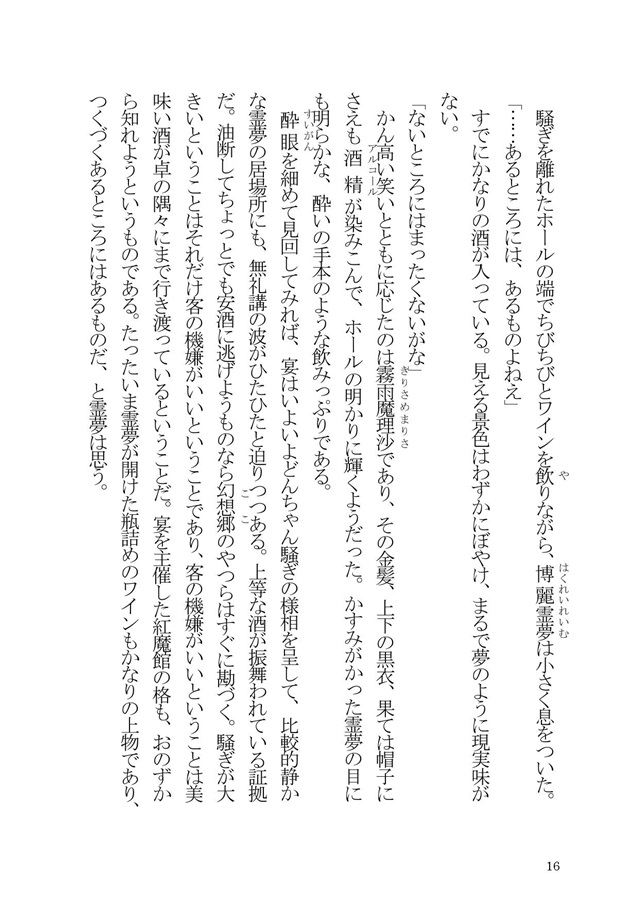 騒ぎを離れたホールの端でちびちびとワインを飲りながら、博麗霊夢は小さく息をついた。
「……あるところには、あるものよねえ」
すでにかなりの酒が入っている。見える景色はわずかにぼやけ、まるで夢のように現実味が
ない。
「ないところにはまったくないがな」
かん高い笑いとともに応じたのは霧雨魔理沙であり、その金髪、上下の黒衣、果ては帽子に
さえも酒精が染みこんで、ホールの明かりに輝くようだった。かすみがかった霊夢の目に
も明らかな、酔いの手本のような飲みっぷりである。
酔眼を細めて見回してみれば、宴はいよいよどんちゃん騒ぎの様相を呈して、比較的静か
な霊夢の居場所にも、無礼講の波がひたひたと迫りつつある。上等な酒が振舞われている証拠
だ。油断してちょっとでも安酒に逃げようものなら幻想郷のやつらはすぐに勘づく。騒ぎが大
きいということはそれだけ客の機嫌がいいということであり、客の機嫌がいいということは美
味い酒が卓の隅々にまで行き渡っているということだ。宴を主催した紅魔館の格も、おのずか
ら知れようというものである。たったいま霊夢が開けた瓶詰めのワインもかなりの上物であり、
つくづくあるところにはあるものだ、と霊夢は思う。
や
はくれいれいむ
きりさめまりさ
アルコール
すいがん
ここ
16